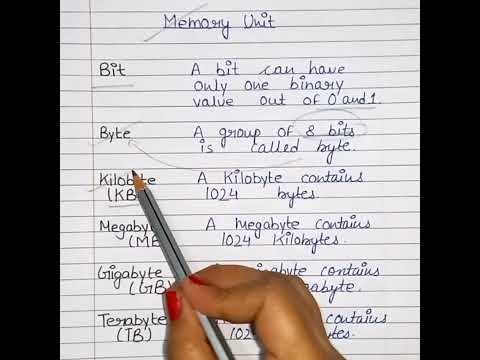 Memory Unit
Bit A bit can have
only one binary
value out of 0 and 1.
Byte A group of 8 bits
is called byte.
Kilobyte A Kilobyte contains
(KB) 1024 bytes.
Megabyte A megabyte contains
(MB 1024 Kilobytes.
Gigabyte contains
(GB)
Terabyte contains
(TB)